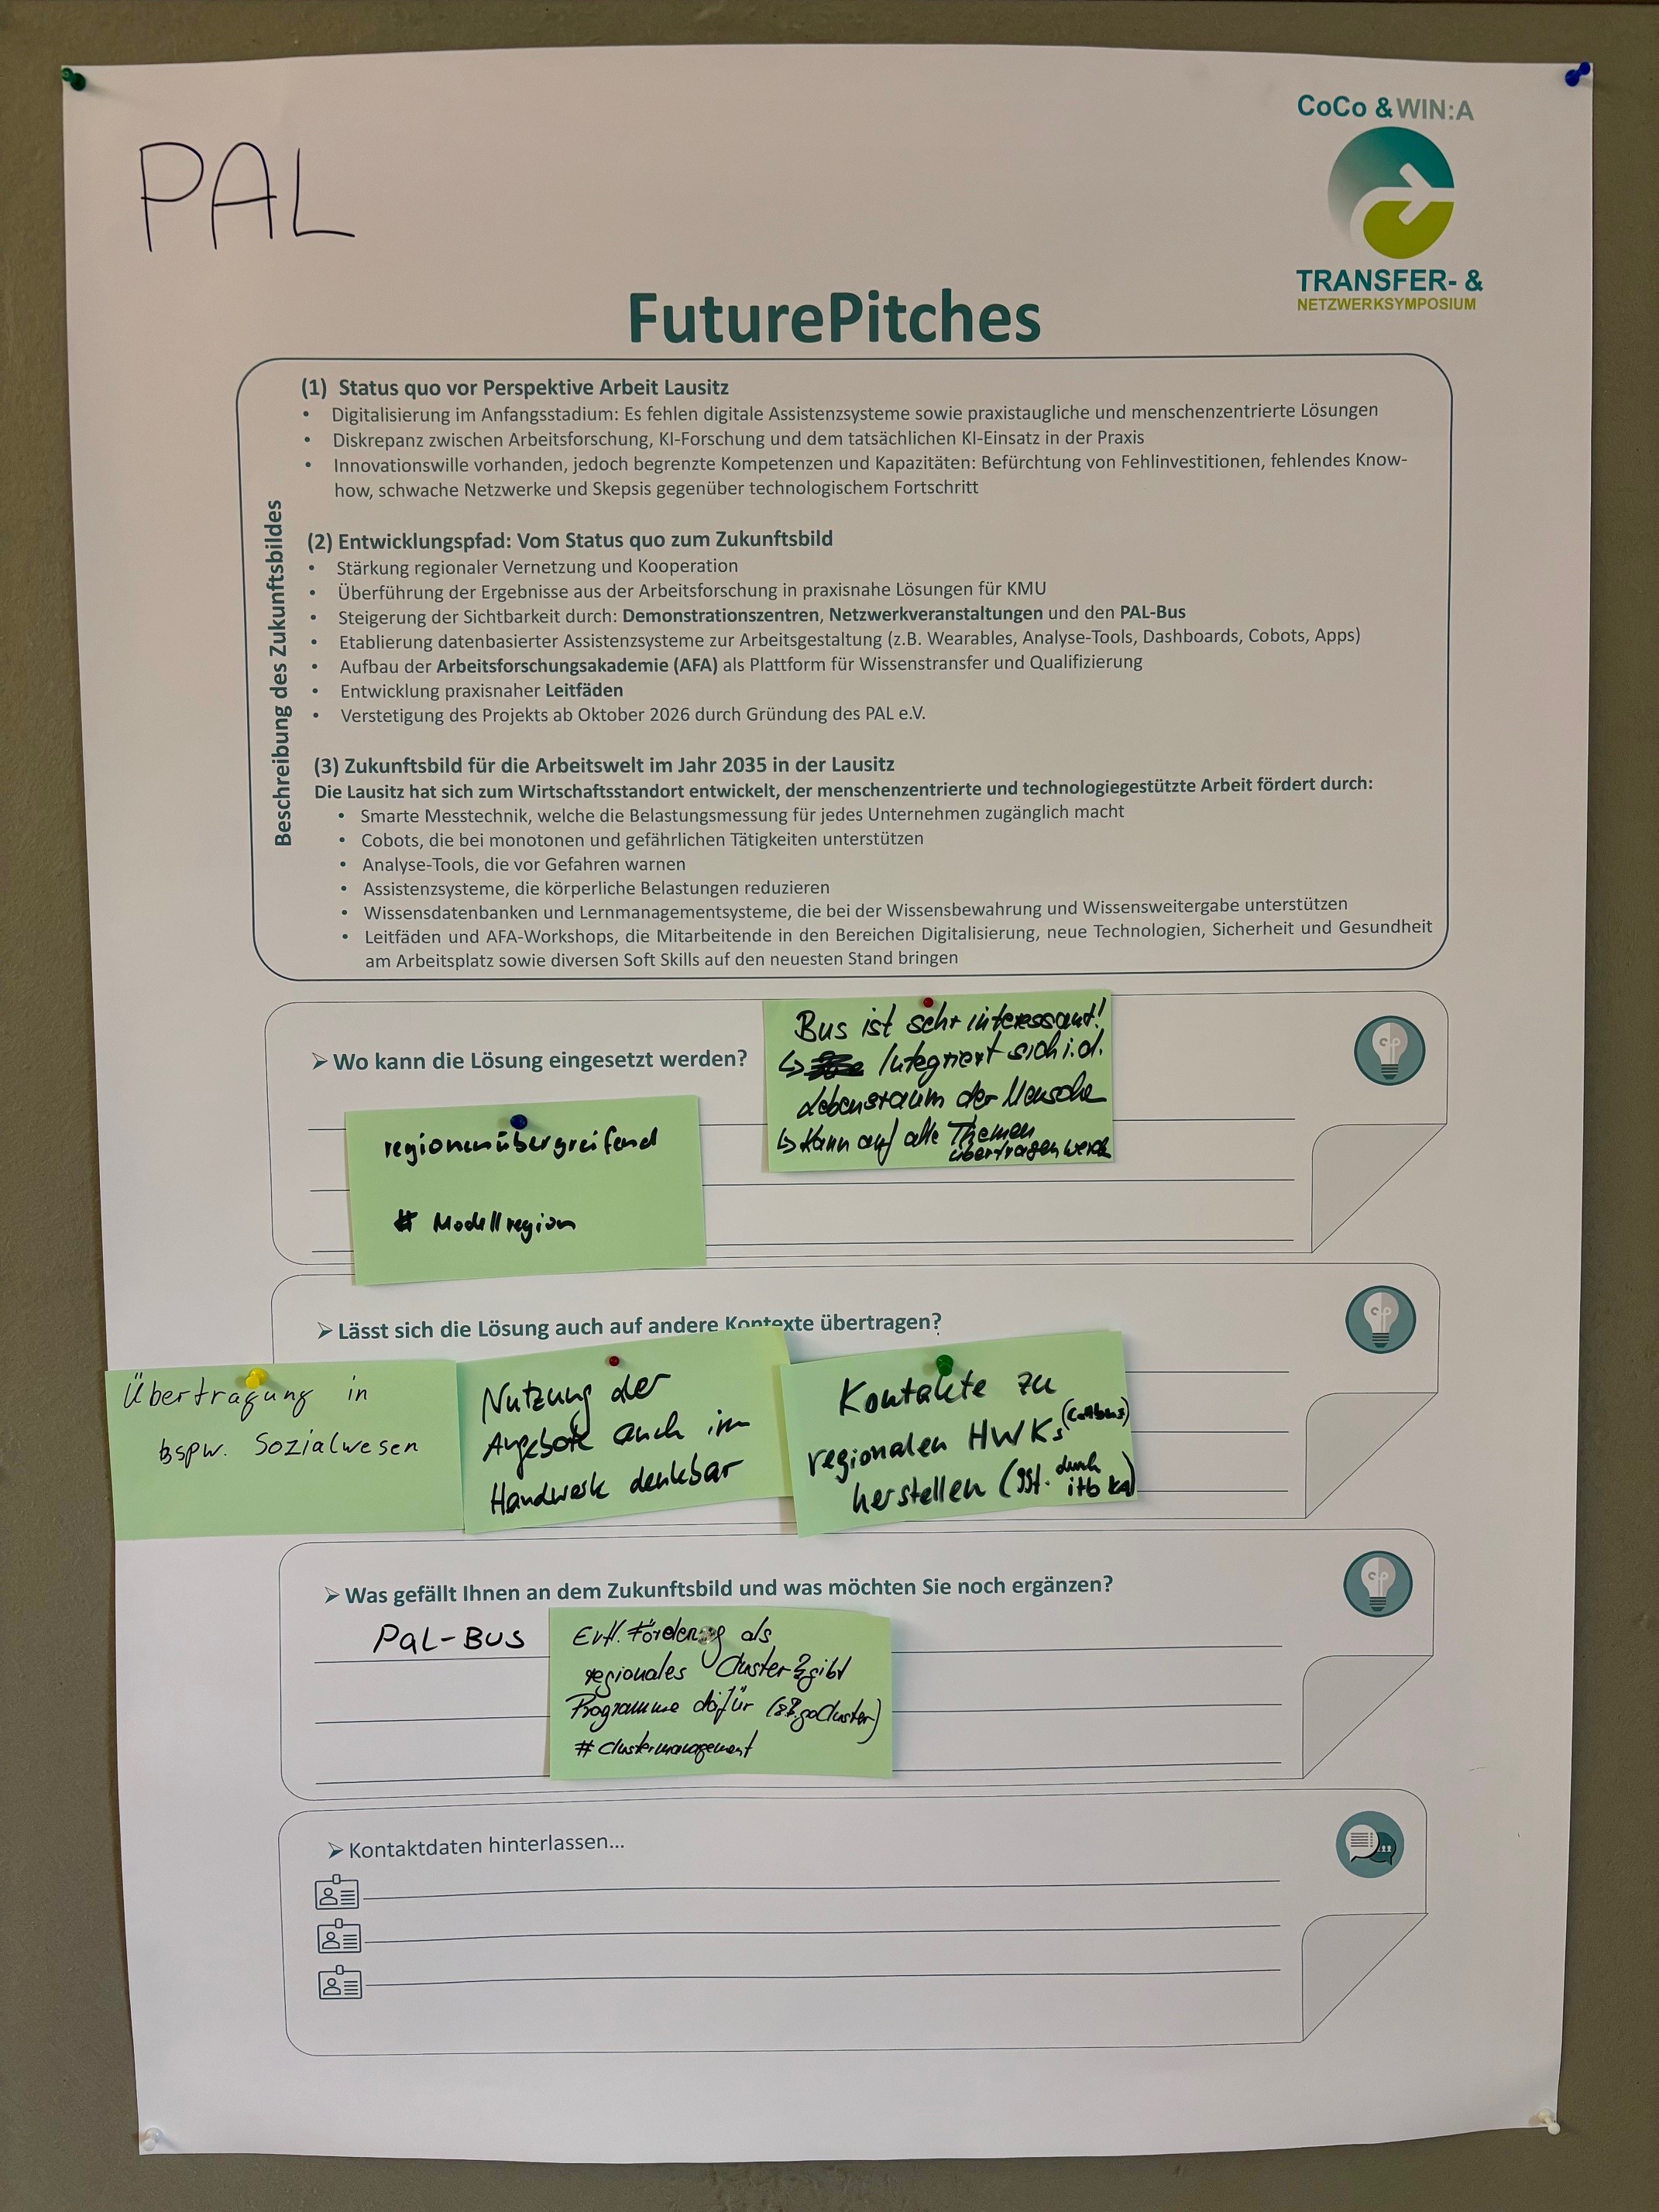 PAL
CoCo & WIN:A
TRANSFER- &
NETZWERKSYMPOSIUM
FuturePitches
Beschreibung des Zukunftsbildes
(1) Status quo vor Perspektive Arbeit Lausitz
• Digitalisierung im Anfangsstadium: Es fehlen digitale Assistenzsysteme sowie praxistaugliche und menschenzentrierte Lösungen
• Diskrepanz zwischen Arbeitsforschung, KI-Forschung und dem tatsächlichen KI-Einsatz in der Praxis
• Innovationswille vorhanden, jedoch begrenzte Kompetenzen und Kapazitäten: Befürchtung von Fehlinvestitionen, fehlendes Know-
how, schwache Netzwerke und Skepsis gegenüber technologischem Fortschritt
(2) Entwicklungspfad: Vom Status quo zum Zukunftsbild
• Stärkung regionaler Vernetzung und Kooperation
• Überführung der Ergebnisse aus der Arbeitsforschung in praxisnahe Lösungen für KMU
• Steigerung der Sichtbarkeit durch: Demonstrationszentren, Netzwerkveranstaltungen und den PAL-Bus
• Etablierung datenbasierter Assistenzsysteme zur Arbeitsgestaltung (z.B. Wearables, Analyse-Tools, Dashboards, Cobots, Apps)
• Aufbau der Arbeitsforschungsakademie (AFA) als Plattform für Wissenstransfer und Qualifizierung
• Entwicklung praxisnaher Leitfäden
• Verstetigung des Projekts ab Oktober 2026 durch Gründung des PAL e.V.
(3) Zukunftsbild für die Arbeitswelt im Jahr 2035 in der Lausitz
Die Lausitz hat sich zum Wirtschaftsstandort entwickelt, der menschenzentrierte und technologiegestützte Arbeit fördert durch:
• Smarte Messtechnik, welche die Belastungsmessung für jedes Unternehmen zugänglich macht
• Cobots, die bei monotonen und gefährlichen Tätigkeiten unterstützen
• Analyse-Tools, die vor Gefahren warnen
• Assistenzsysteme, die körperliche Belastungen reduzieren
• Wissensdatenbanken und Lernmanagementsysteme, die bei der Wissensbewahrung und Wissensweitergabe unterstützen
• Leitfäden und AFA-Workshops, die Mitarbeitende in den Bereichen Digitalisierung, neue Technologien, Sicherheit und Gesundheit
am Arbeitsplatz sowie diversen Soft Skills auf den neuesten Stand bringen
➢ Wo kann die Lösung eingesetzt werden?
Bus ist sehr interessant!
↳ Integriert sich i.d.
Lebensraum der Mensche
↳ Kann auf alle Themen
übertragen werde
regionenübergreifend
# Modellregion
➢ Lässt sich die Lösung auch auf andere Kontexte übertragen?
Übertragung in
bspw. Sozialwesen
Nutzung der
Angebote auch im
Handwerk denkbar
Kontakte zu
regionalen HWKs (Cottbus)
herstellen (ggf. durch
itb KA)
➢ Was gefällt Ihnen an dem Zukunftsbild und was möchten Sie noch ergänzen?
PAL-BUS
Evtl. Förderung als
regionales Cluster? gibt
Programme dafür (z.B. goCluster)
# Clustermanagement
➢ Kontaktdaten hinterlassen...